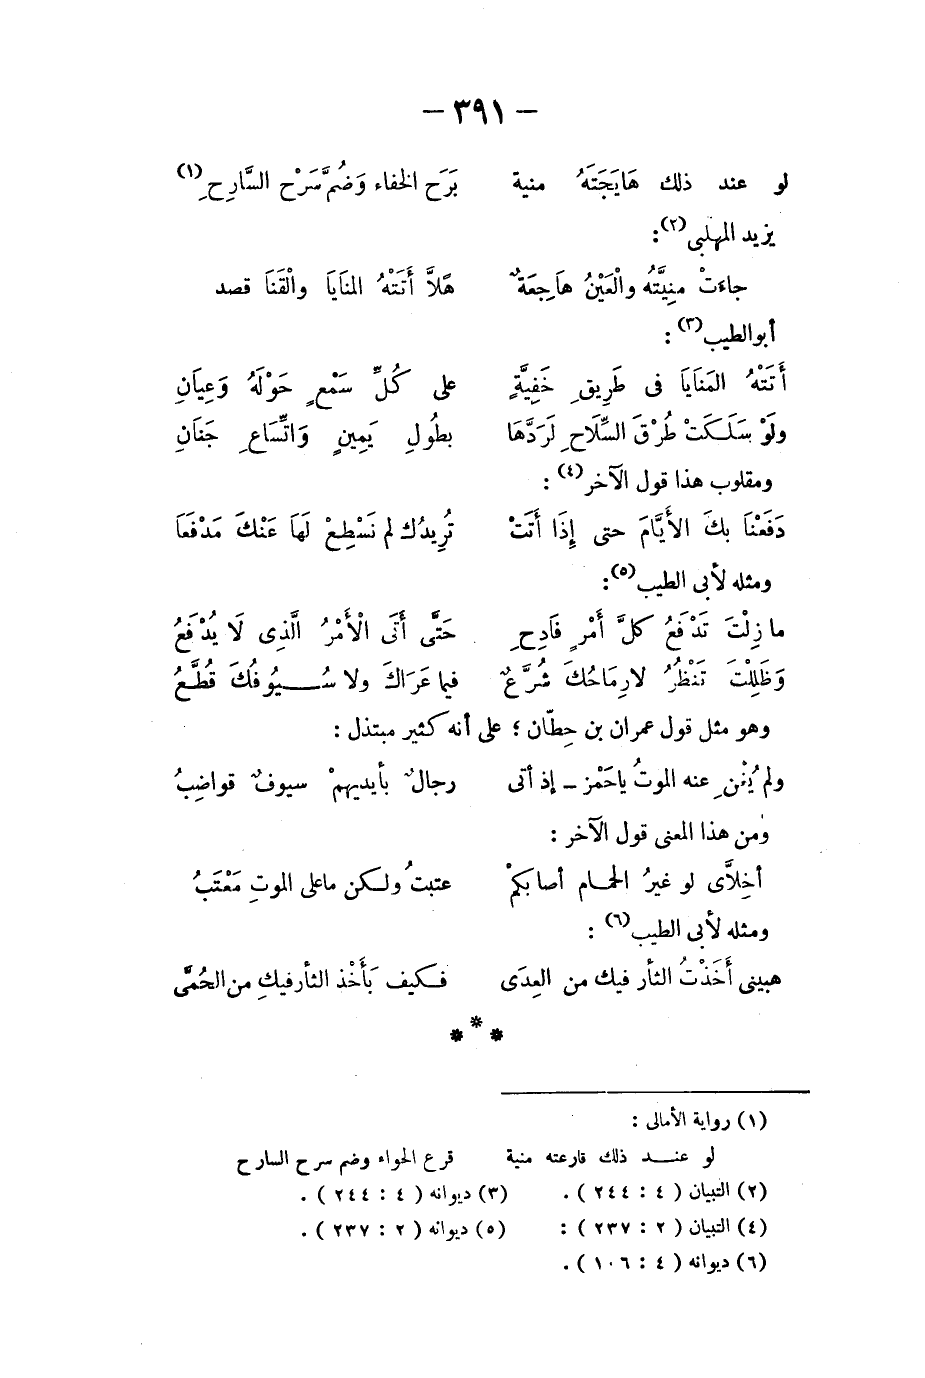 — ٣٩١ —
لو عند ذلك هَايَجَتَهُ منية بَرَح الخفاء وَضُمَّ سَرْح السَّارِحِ (١)
يزيد المهلبى (٢) :
جاءتْ منِيَّتُه والْعَيْنُ هاَجِعَةٌ هًلاَّ أَتَتْهُ المنَايَا والْقَنَا قصد
أبو الطيب (٣) :
أَتَتْهُ المَنَايَا فى طَرِيقٍ خَفِيَّةٍ على كُلِّ سَمْعٍ حَوْلَهُ وَعِيَانِ
ولَوْ سَلَكَتْ طُرْقَ السِّلَاحِ لَرَدَّهَا بطُولِ يَمِينٍ وَاتِّسَاعِ جَنَانِ
ومقلوب هذا قول الآخر (٤) :
دَفَعْنَا بكَ الأَيَّامَ حتى إِذَا أَتَتْ تُرِيدُك لم نَسْطِعْ لَهَا عَنْكَ مَدْفَعَا
ومثله لأبى الطيب (٥) :
ما زِلْتَ تَدْفَعُ كلَّ أَمْرٍ فَادِحٍ حَتَّى أَتَى الْأَمْرُ الَّذِى لَا يُدْفَعُ
وَظَلِلْتَ تَنْظُرُ لا رِمَاحُكَ شُرَّعٌ فيما عَرَاكَ ولا سُيُوفُكَ قُطَّعُ
وهو مثل قول عمران بن حِطّان ؛ على أنه كثير مبتذل :
ولم يُغْنِ عنه الموتُ يا حَمْز - إذ أتى رجالٌ بأيديهمْ سيوفٌ قواضِبُ
ومن هذا المعنى قول الآخر :
أخِلاَّى لو غيرُ الحمام أصابكمْ عتبتُ ولكن ما على الموتِ مَعْتَبُ
ومثله لأبى الطيب (٦) :
هبينى أَخَذْتُ الثأر فيك من العِدَى فكيف بَأَخْذ الثأر فيكِ من الحُمَّى
* * *
(١) رواية الأمالى :
لو عند ذلك قارعته منية قرع الحواء وضم سرح السارح
(٢) التبيان (٤ : ٢٤٤) . (٣) ديوانه (٤ : ٢٤٤) .
(٤) التبيان (٢ : ٢٣٧) : (٥) ديوانه (٢ : ٢٣٧) .
(٦) ديوانه (٤ : ١٠٦) .